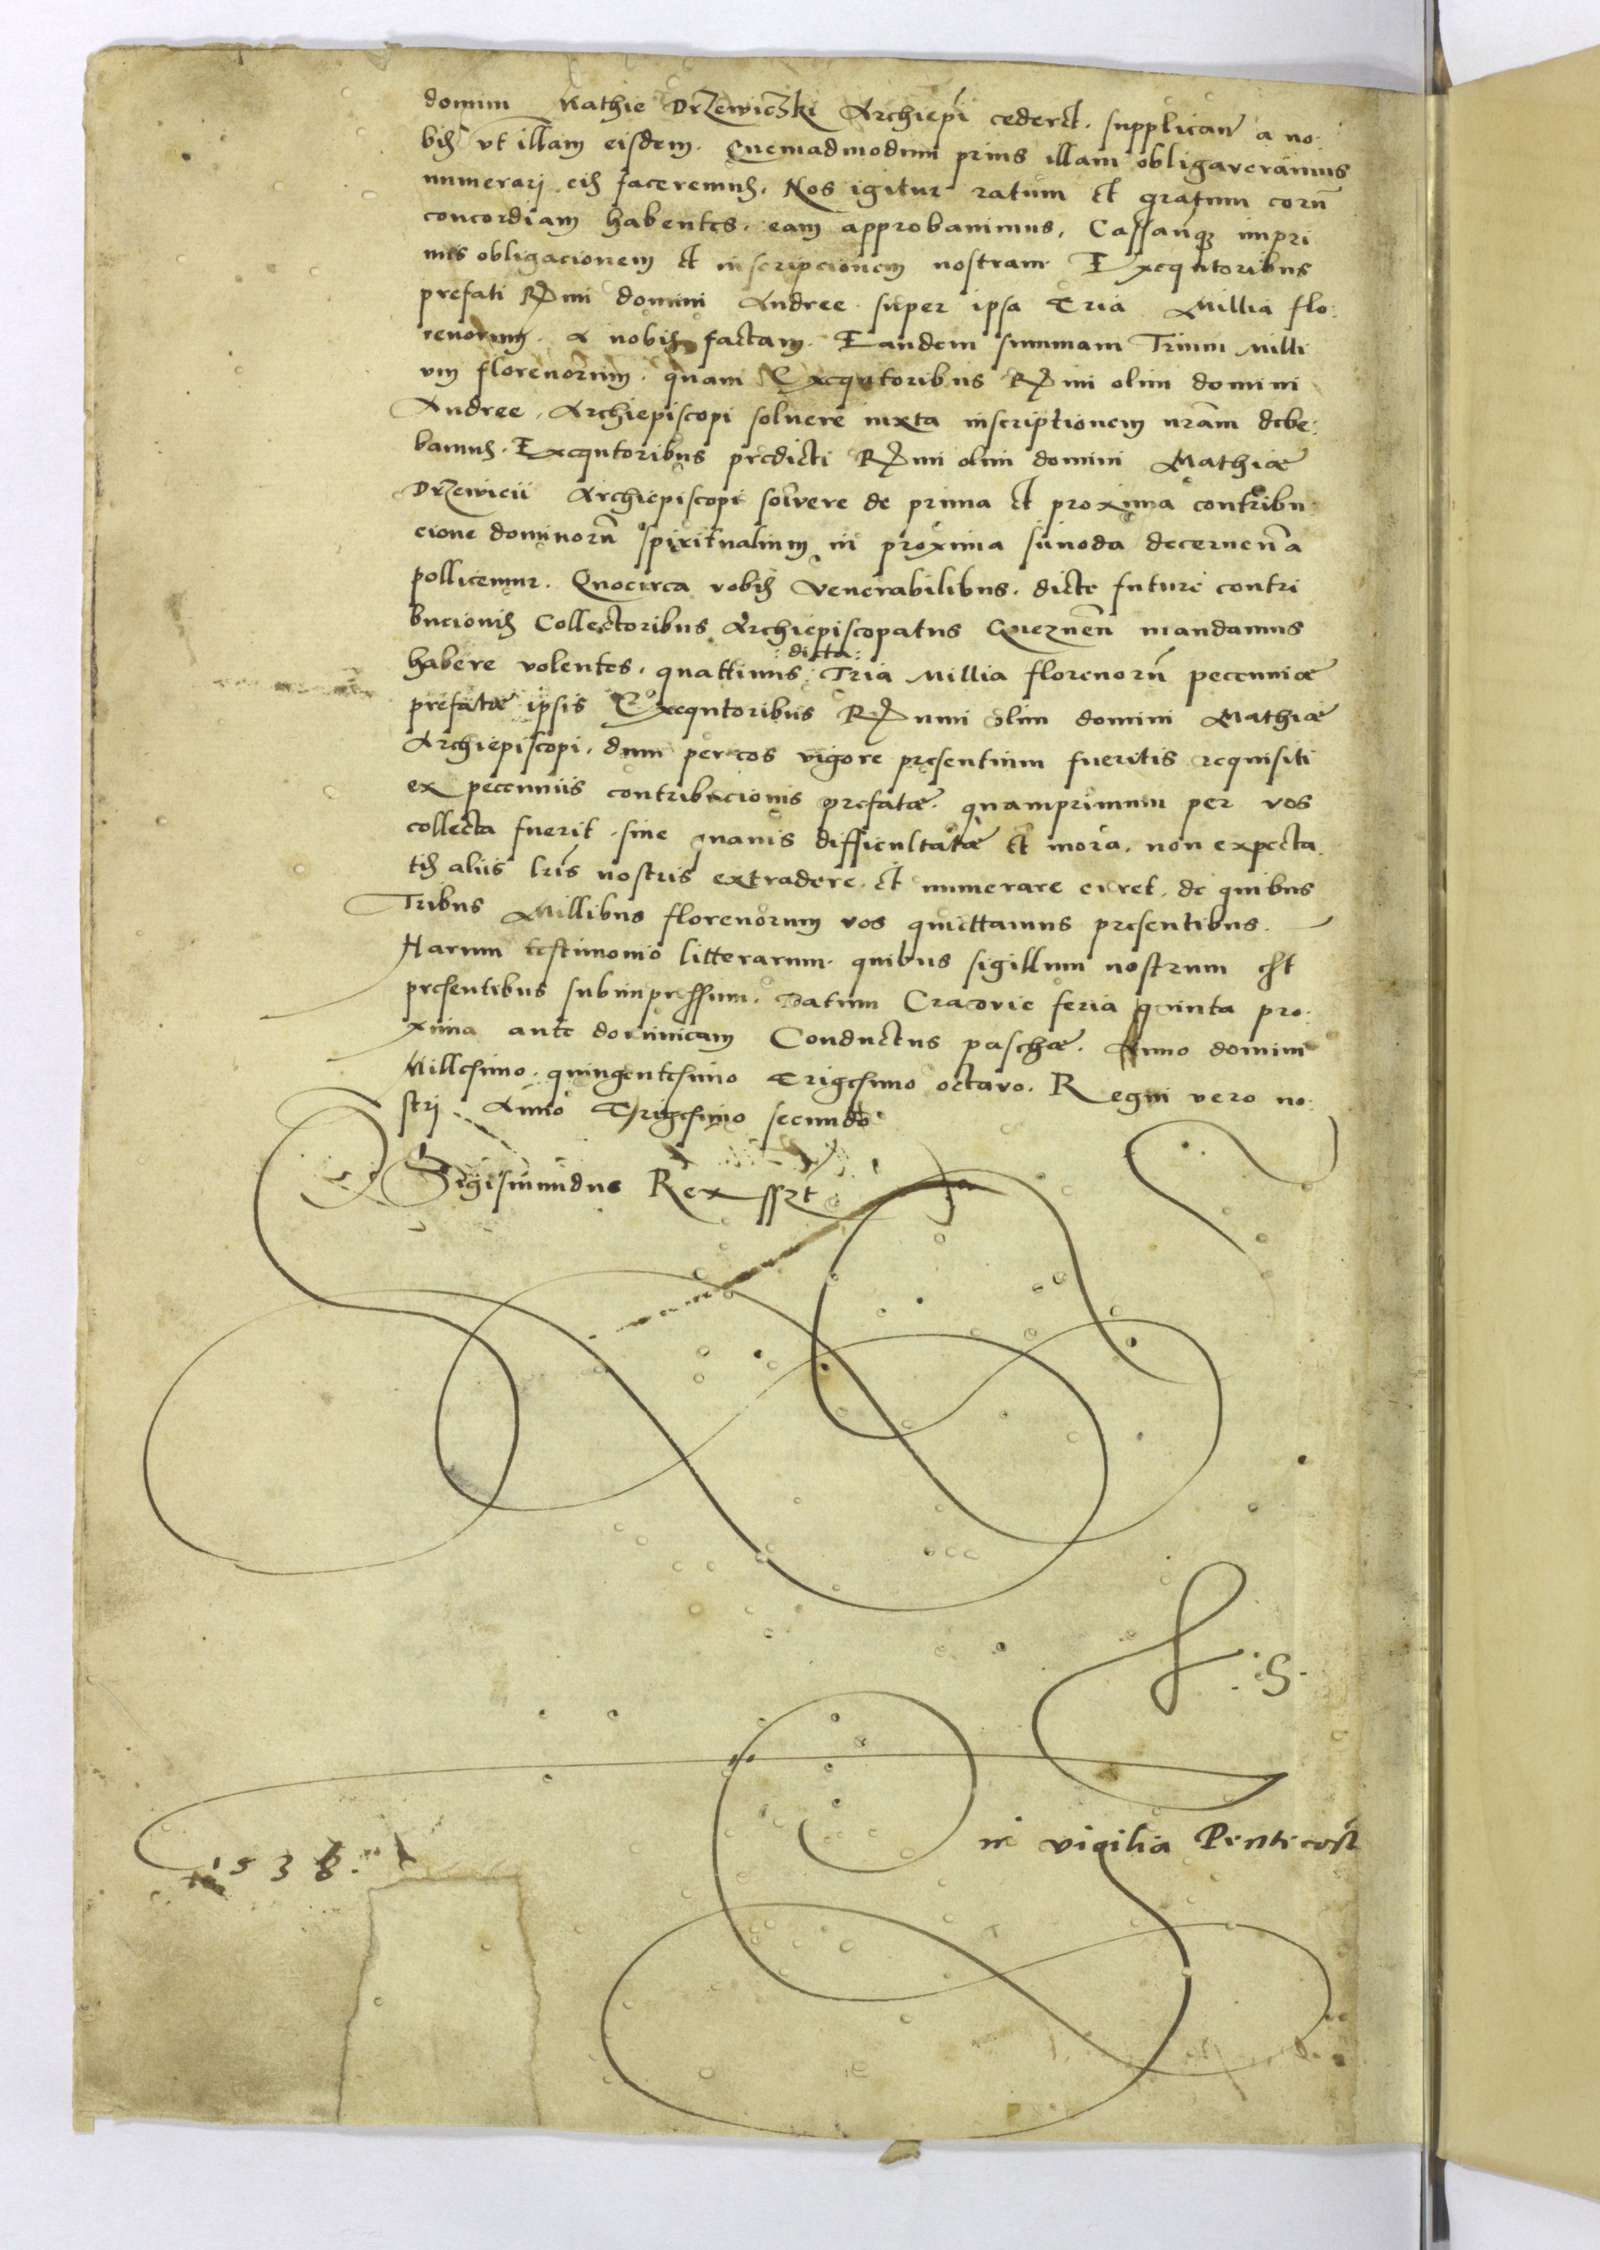 domini Mathie DrZewiczki Archiepi cederet. supplicarunt a no
bis ut illam eisdem. Quemadmodum prius illam obligaveramus
numerari eis faceremus. Nos igitur ratum et gratum eorum
concordiam habentes, eam approbavimus, Cassatisque impri
mis obligacionem et inscripcionem nostram Exequtoribus
prefati Rmi domini Andree super ipsa Tria Millia flo:
renorum a nobis factam. Eandem summam Trium Milli
um florenorum quam Exequtoribus Rmi olim domini
Andree, Archiepiscopi solvere iuxta inscriptionem nram debe:
bamus. Exequtoribus predicti Rmi olim domini Mathiae
DrZewicii Archiepiscopi solvere de prima et proxima contribu
cione dominorum spiritualium in proxima sinoda decernenda
pollicemur. Quocirca vobis Venerabilibus, dicte future contri
bucionis Collectoribus Archiepiscopatus Gneznen mandamus
habere volentes, quattinus :dicta: Tria Millia florenorum pecuniae
prefatae ipsis Exequtoribus Rmi olim domini Mathiae
Archiepiscopi, dum per eos vigore presentium fueritis requisiti
ex pecuniis contribucionis prefatae, quamprimum per vos
collecta fuerit, sine quavis difficultate et mora, non expecta
tis aliis lris nostris extradere, et numerare curet, de quibus
Tribus Millibus florenorum vos quittamus presentibus.
Harum testimonio litterarum quibus sigillum nostrum est
presentibus subimpressum. Datum Cracovie feria quinta pro:
xima ante dominicam Conductus paschae. Anno domini
Millesimo quingentesimo Trigesimo octavo. Regni vero no:
stri Anno Trigesimo secundo
Sigismundus Rex sszt
.S.
in vigilia Pentecost
1538.